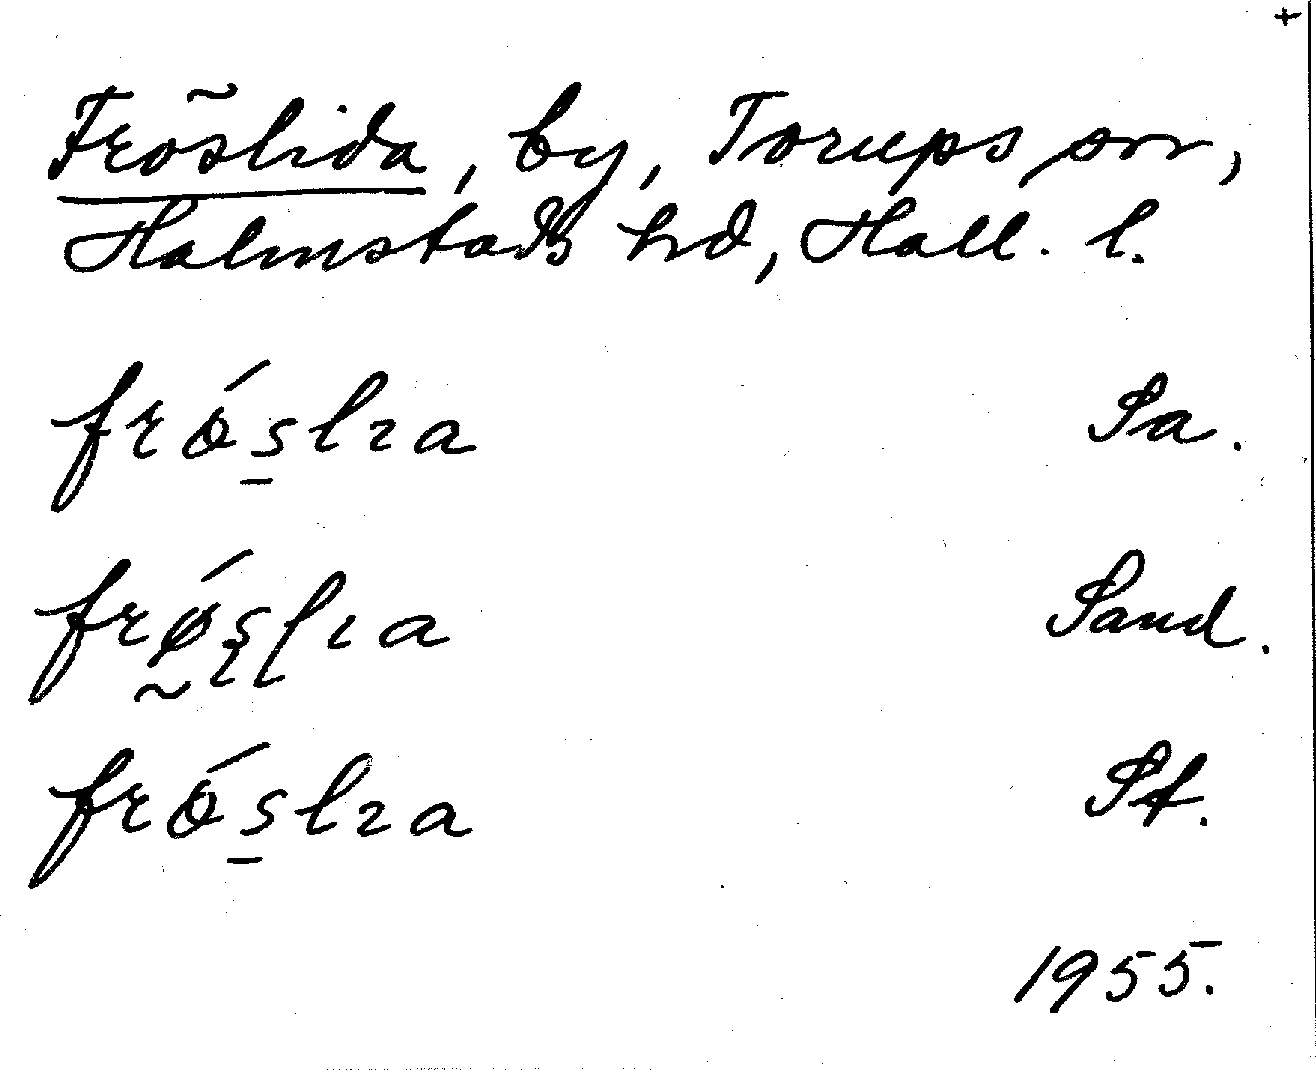 +
Fröslida, by, Torups sn,
Halmstads hd, Hall. l.
frǿs̠lıa Sa.
frǿ̰ʂɭıa Sand.
frǿs̠lıa St.
1955.